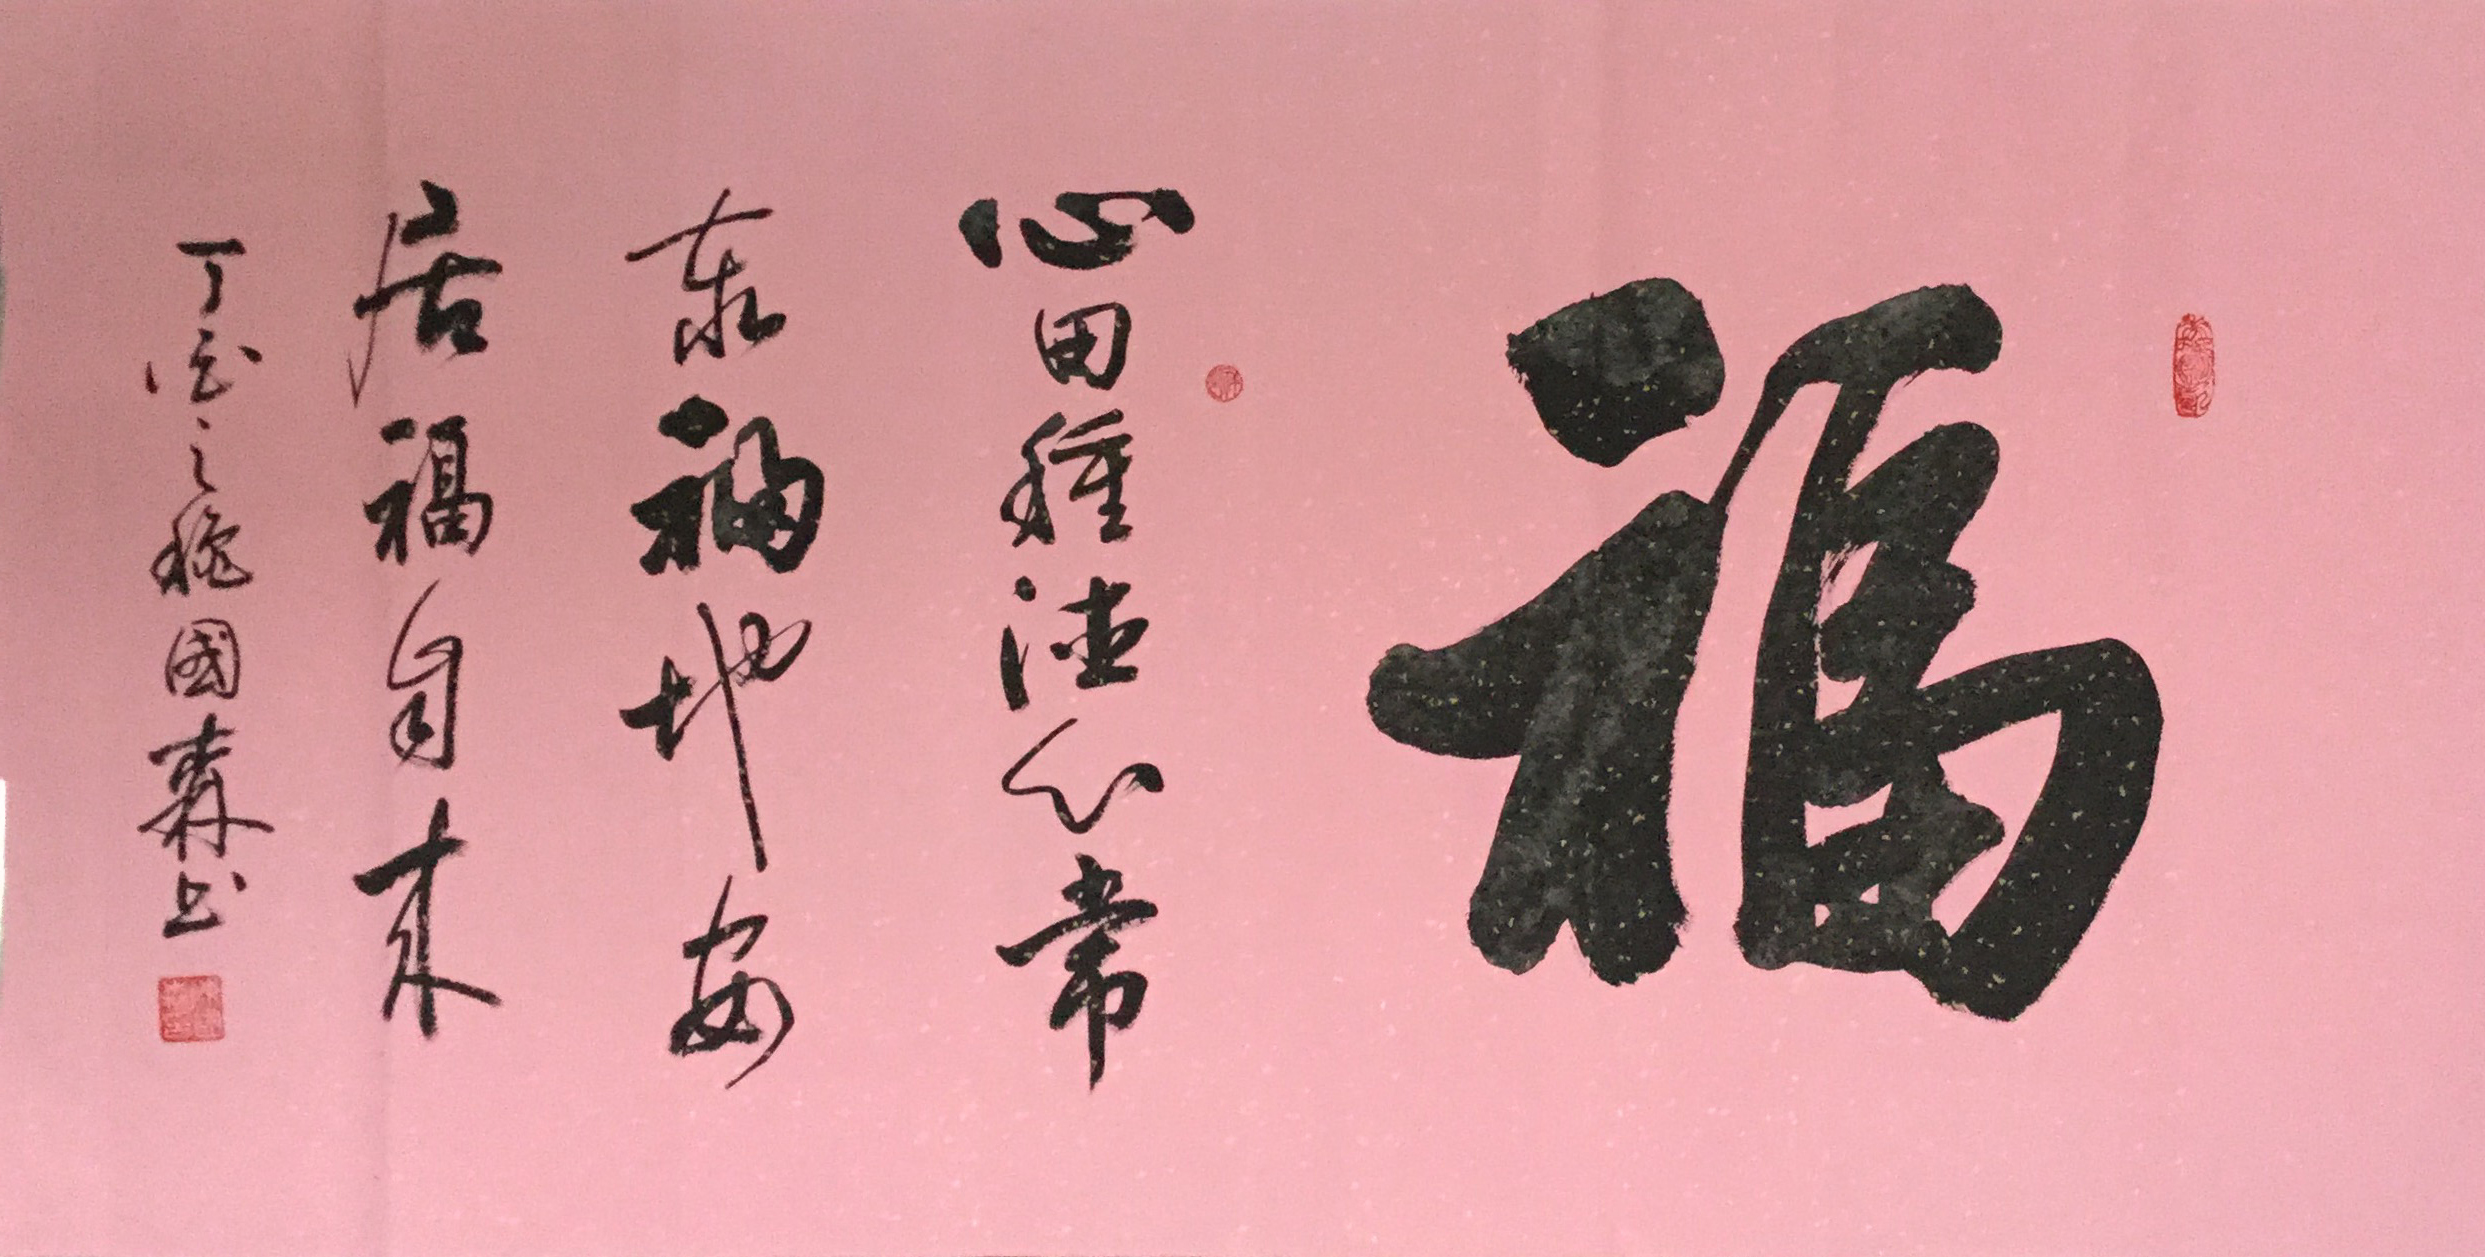 福
心田種德心常
泰福地安
居福自來
丁酉之秋國森书